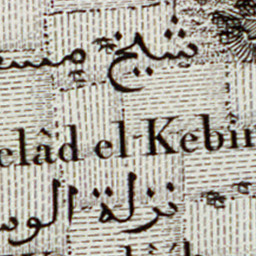 شيخ مسع
elâd el Kebîr
نزلة الوس